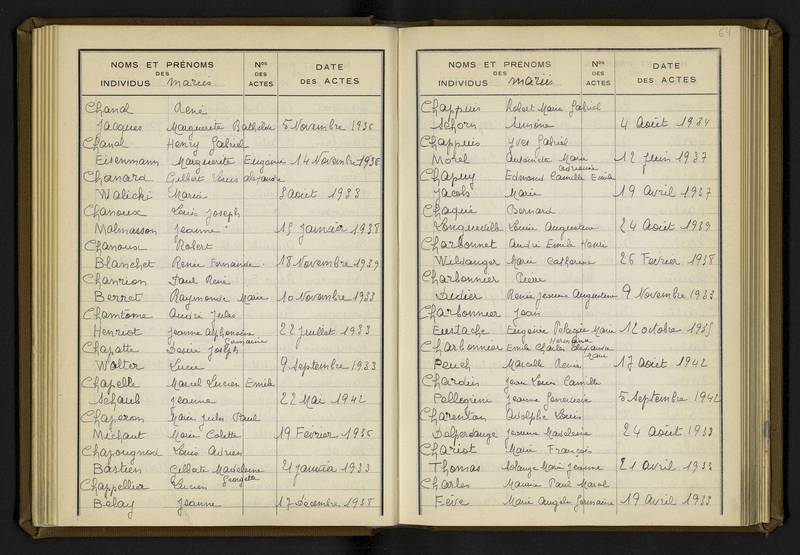 NOMS ET PRÉNOMS
DES
INDIVIDUS mariés
Nos
DES
ACTES
DATE
DES ACTES
Chanal René
Jacques Marguerite Bathilde 5 Novembre 1936
Chanal Henry Gabriel
Eisenmann Marguerite Eugenie 14 Novembre 1936
Chanard Gilbert Louis Alexandre
Walicki Maria 8 aout 1933
Chanoux Louis Joseph
Malmasson Jeanne 15 janvier 1938
Chanoux Robert
Blanchet Renée Fernande 18 Novembre 1939
Chanrion Paul René
Berret Raymonde Marie 10 Novembre 1933
Chamtome André Jules
Henriot Jeanne Alphonsine Germaine 22 juillet 1933
Chapatte Désiré Joseph
Walter Lucie 9 septembre 1933
Chapelle Marcel Lucien Emile
Schaub Jeanne 22 Mai 1942
Chaperon Marie Jules Paul
Michaut Marie Colette 19 Février 1936
Chapougnod Louis Adrien
Bastien Gilberte Madeleine 21 janvier 1933
Chappellier Lucien Georges
Belay Jeanne 17 décembre 1938
64
NOMS ET PRÉNOMS
DES
INDIVIDUS mariés
Nos
DES
ACTES
DATE
DES ACTES
Chappuis Robert Marie Gabriel
Schorn Simone 4 Août 1934
Chappuis Yves Gabriel
Morel Antoinette Marie 12 juin 1937
Chapuy Edmond Camille Emile
Jacob Marie 19 Avril 1937
Chaqué Bernard
Longueville Louise Augustine 24 Août 1939
Charbonnet André Emile Henri
Wildanger Marie Catherine 26 Février 1938
Charbonnier Pierre
Didier Renée Jeanne Augustine 9 Novembre 1933
Charbonnier Jean
Eustache Eugénie Pelagie Marie 12 octobre 1935
Charbonnier Emile Charles Alexandre
Penel Marcelle Renée 17 Août 1942
Chardin Jean Louis Camille
Pellegrini Jeanne Genevieve 5 Septembre 1942
Charenton Adolphe Louis
Delperdange Jeanne Madeleine 24 Août 1933
Chariot Marie François
Thomas Solange Marie Jeanne 21 avril 1933
Charles Maurice Paul Marcel
Fève Marie Angèle Germaine 19 Avril 1933